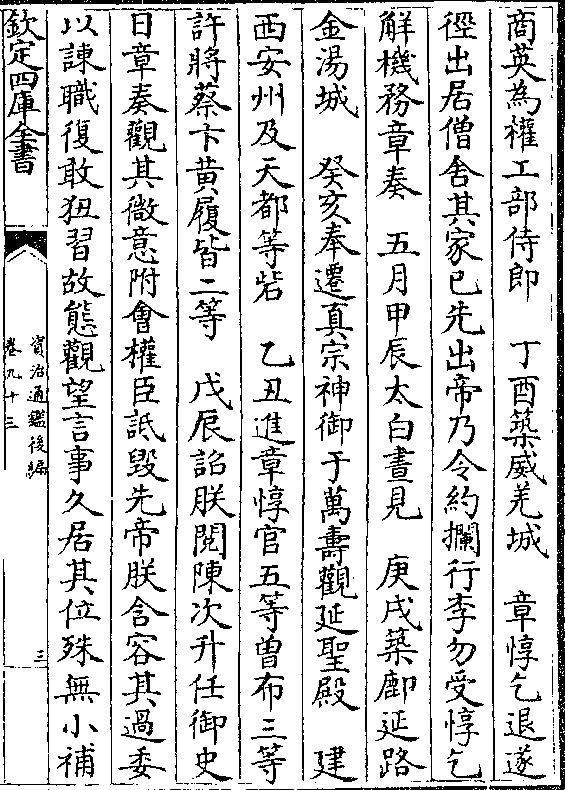 商英為權工部侍郎　丁酉築威羌城　章惇乞退遂
徑出居僧舍其家已先出帝乃令約攔行李勿受惇乞
解機務章奏　五月甲辰太白晝見　庚戌築鄜延路
金湯城　癸亥奉遷真宗神御于萬壽觀延聖殿　建
西安州及天都等砦　乙丑進章惇官五等曾布三等
許將蔡卞黄履皆二等　戊辰詔朕閱陳次升任御史
日章奏觀其微意附會權臣詆毀先帝朕含容其過委
以諫職復敢狃習故態觀望言事久居其位殊無小補
欽定四庫全書
資治通鑑後編
卷九十三
三